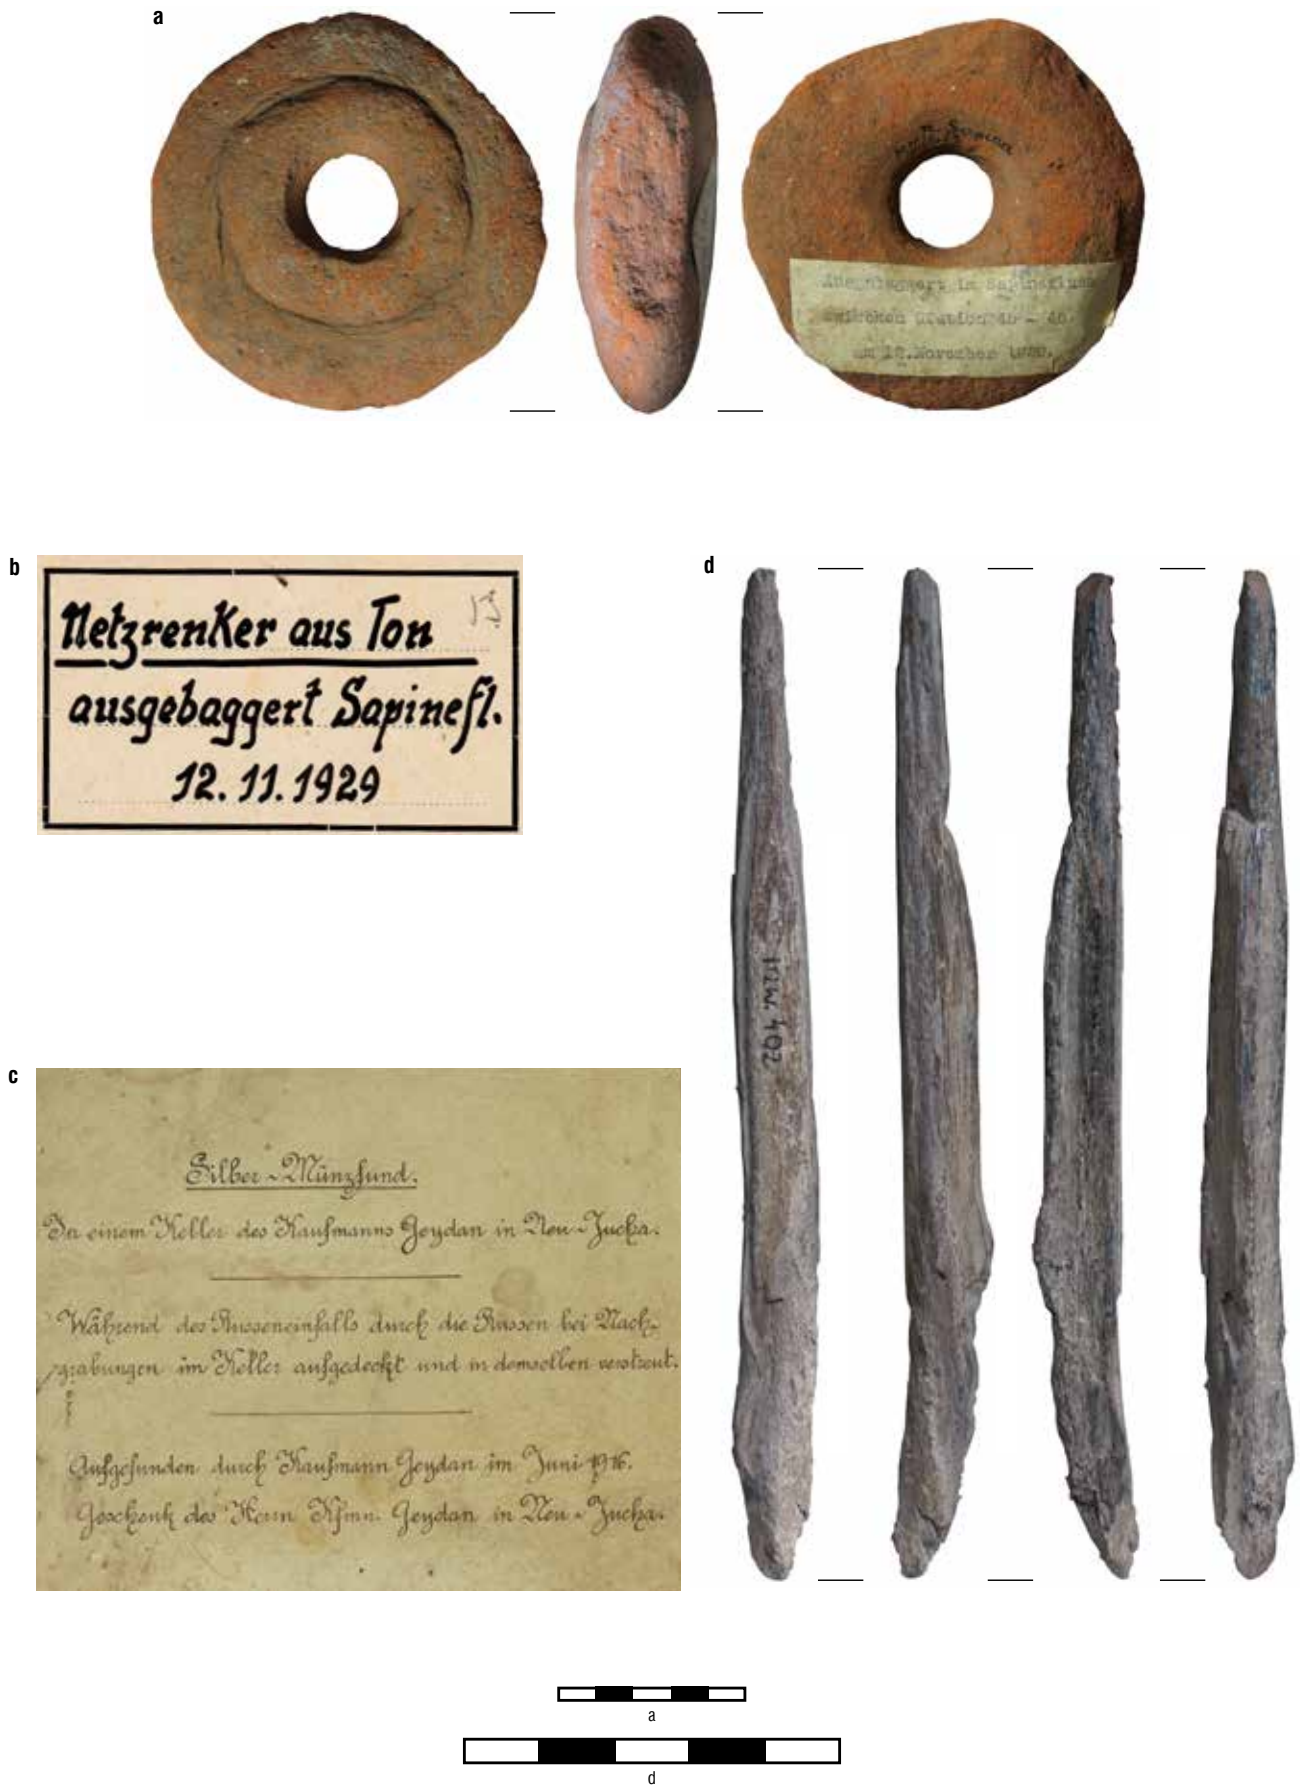 a
Sapine
Ausgebaggert im Sapinefluss
zwischen Station 45 – 46.
am 12. November 1929.
b
Netzrenker aus Ton
ausgebaggert Sapinefl.
12. 11. 1929
c
Silber-Münzfund.
In einem Keller des Kaufmanns Geydan in Neu-Jucha.
Während des Russeneinfalls durch die Russen bei Nach-
grabungen im Keller aufgedeckt und in demselben verstreut.
Aufgefunden durch Kaufmann Geydan im Juni 1916.
Geschenk des Herrn Kfmn. Geydan in Neu-Jucha.
d
402
a
d